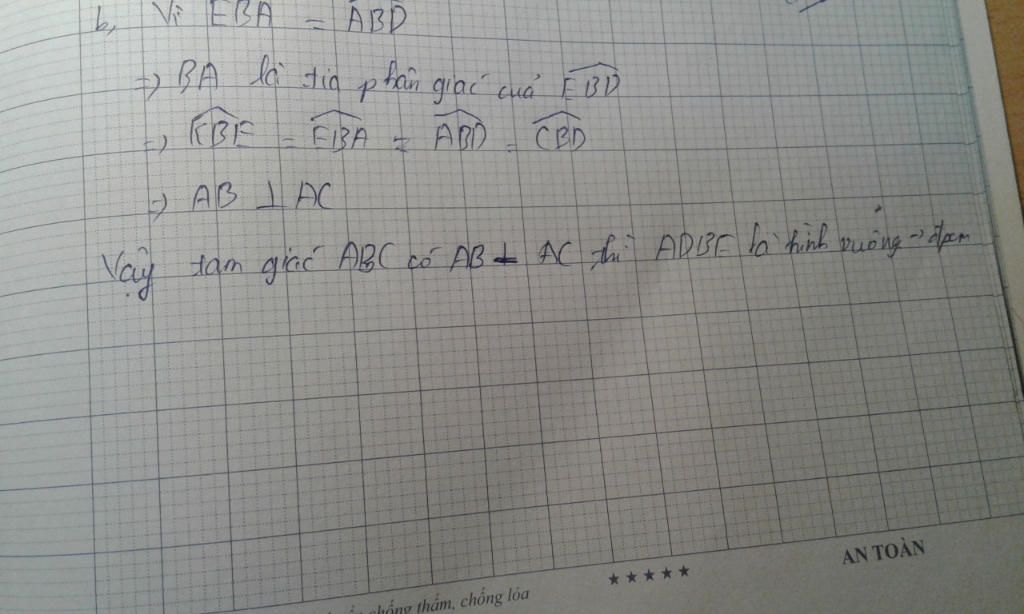 b, Vì EBA = ABD
=> BA là tia phân giác của EBD
=> KBE = EBA = ABD = CBD
=> AB ⊥ AC
Vậy tam giác ABC có AB ⊥ AC thì ADBE là hình vuông → đpcm
AN TOÀN
★★★★★
chống thấm, chống lóa